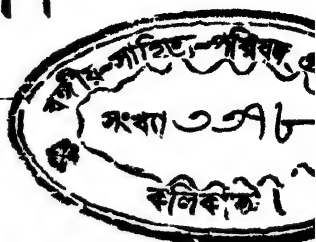 বঙ্গীয়-সাহিত্য-পরিষদ্
সংখ্যা ৩৩৭৮
কলিকাতা।